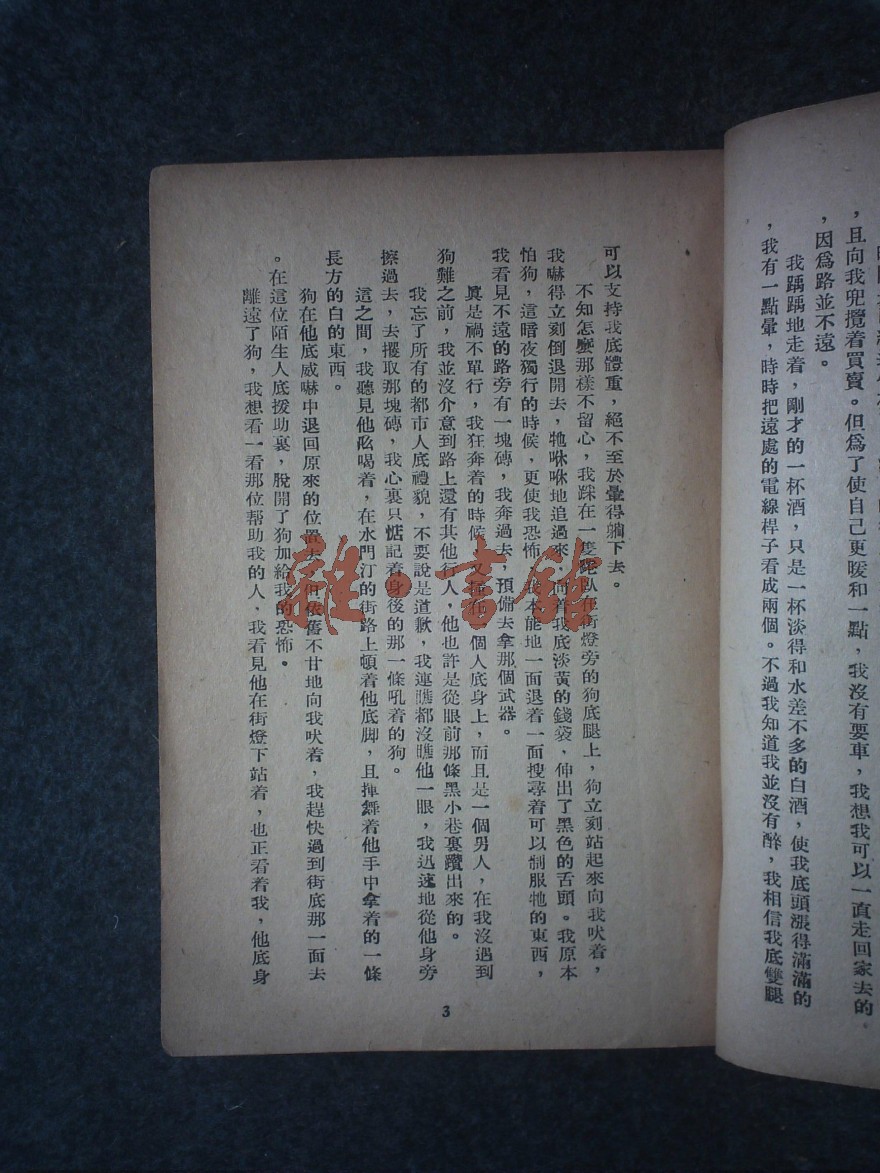 ，且向我兜攬着買賣。但爲了使自己更暖和一點，我沒有要車，我想我可以一直走回家去的
，因爲路並不遠。
我踽踽地走着，剛才的一杯酒，只是一杯淡得和水差不多的白酒，使我底頭漲得滿滿的
，我有一點暈，時時把遠處的電線桿子看成兩個。不過我知道我並沒有醉，我相信我底雙腿
可以支持我底體重，絕不至於暈得躺下去。
不知怎麼那樣不留心，我踩在一隻臥在街燈旁的狗底腿上，狗立刻站起來向我吠着，
我嚇得立刻倒退開去，牠咻咻地追過來，向着我底淡黃的錢袋，伸出了黑色的舌頭。我原本
怕狗，這暗夜獨行的時候，更使我恐怖，我本能地一面退着一面搜尋着可以制服牠的東西，
我看見不遠的路旁有一塊磚，我奔過去，預備去拿那個武器。
眞是禍不單行，我狂奔着的時候，又撞在一個人底身上，而且是一個男人，在我沒遇到
狗難之前，我並沒介意到路上還有其他行人，他也許是從眼前那條黑小巷裏躦出來的。
我忘了所有的都市人底禮貌，不要說是道歉，我連瞧都沒瞧他一眼，我迅速地從他身旁
擦過去，去攫取那塊磚，我心裏只惦記着身後的那一條吼着的狗。
這之間，我聽見他吆喝着，在水門汀的街路上頓着他底脚，且揮舞着他手中拿着的一條
長方的白的東西。
狗在他底威嚇中退回原來的位置去，但依舊不甘地向我吠着，我趕快過到街底那一面去
。在這位陌生人底援助裏，脫開了狗加給我的恐怖。
離遠了狗，我想看一看那位帮助我的人，我看見他在街燈下站着，也正看着我，他底身
3
雜·書館